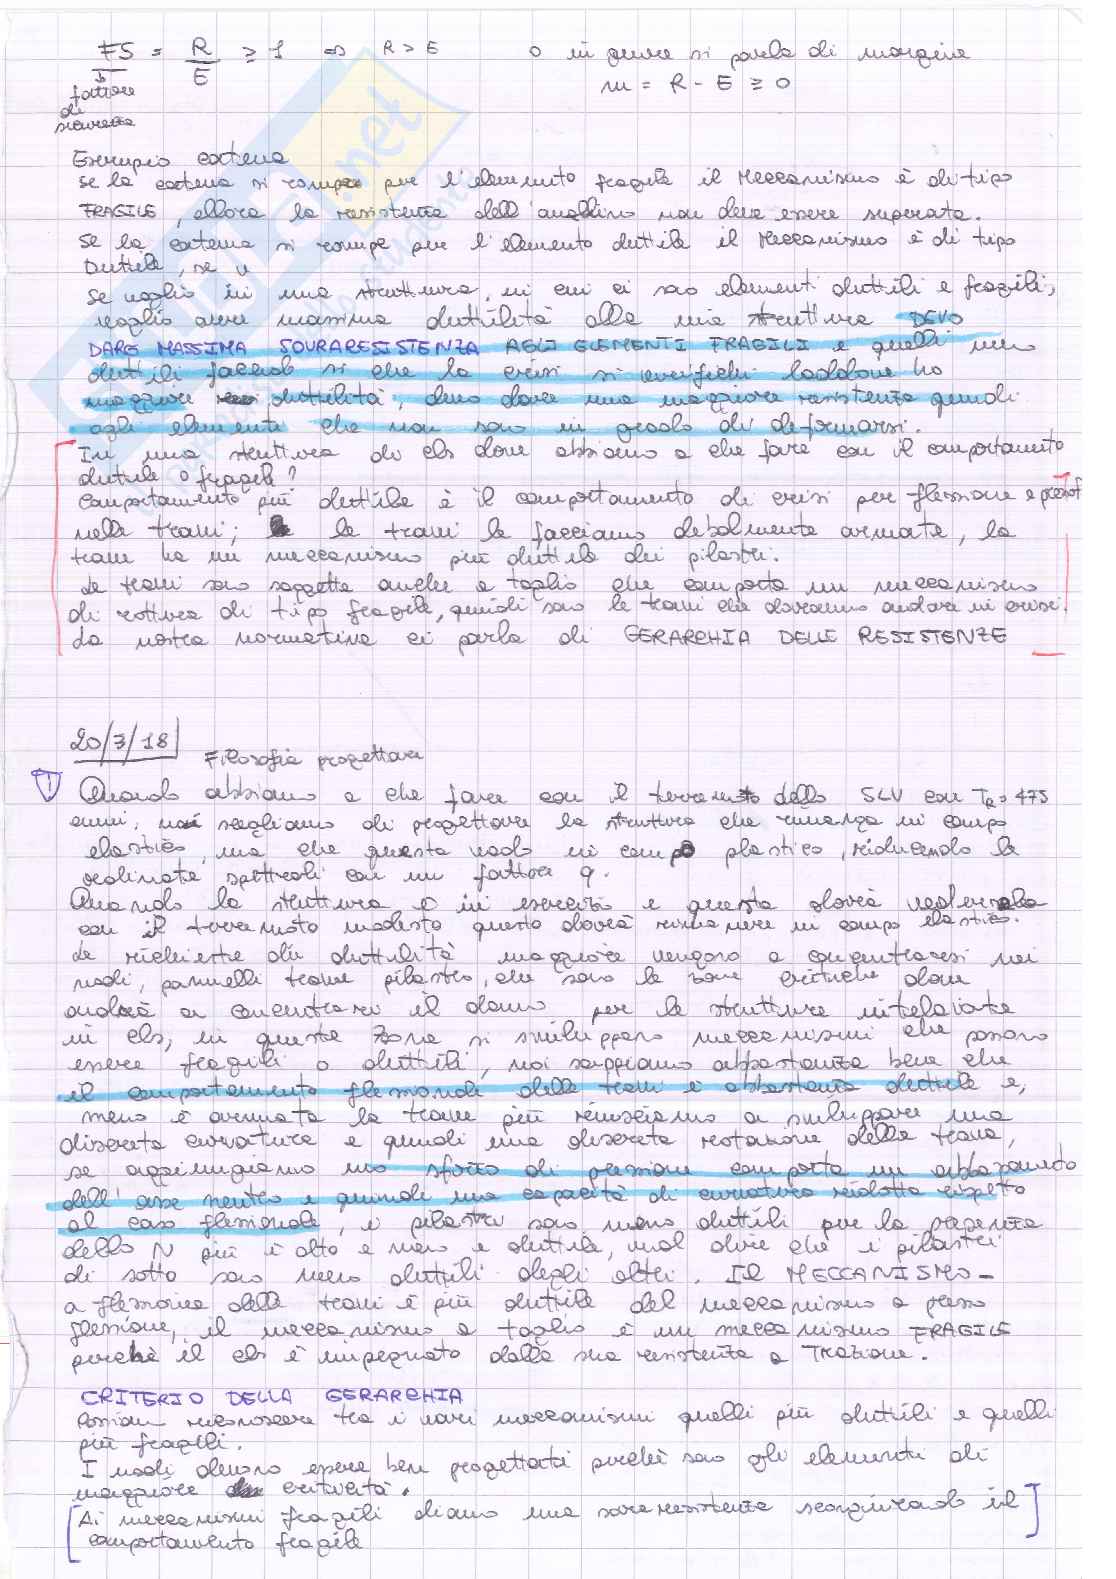 FS = R/E ≥ 1 ⇒ R > E o in genere si parla di margine
↓ fattore di sicurezza
m = R - E ≥ 0
Esempio catena
Se la catena si rompe per l'elemento fragile il Meccanismo è di tipo
FRAGILE, allora la resistenza dell'anellino non deve essere superata.
Se la catena si rompe per l'elemento duttile il Meccanismo è di tipo
Duttile, se v
Se voglio in una struttura, in cui ci sono elementi duttili e fragili,
voglio avere massima duttilità alla mia struttura DEVO
DARE MASSIMA SOVRARESISTENZA AGLI ELEMENTI FRAGILI e quelli meno
duttili facendo si che la crisi si verifichi laddove ho
maggiore duttilità, devo dare una maggiore resistenza quindi
agli elementi che non sono in grado di deformarsi.
In una struttura di cls dove abbiamo a che fare con il comportamento
duttile o fragile?
Comportamento più duttile è il comportamento di crisi per flessione e pressof
nelle travi; le travi le facciamo debolmente armate, la
trave ha un meccanismo più duttile dei pilastri.
Le travi sono soggette anche a taglio che comporta un meccanismo
di rottura di tipo fragile, quindi sono le travi che dovranno andare in crisi.
La nostra normativa ci parla di GERARCHIA DELLE RESISTENZE
20/3/18
Filosofia progettuale
! Quando abbiamo a che fare con il terremoto dello SLV con TR = 475
anni, noi scegliamo di progettare la struttura che rimanga in campo
elastico, ma che questa vada in campo plastico, riducendo le
ordinate spettrali con un fattore q.
Quando la struttura è in esercizio e questa dovrà vedersela
con il terremoto modesto questo dovrà rimanere in campo elastico.
Le richieste di duttilità maggiore vengono a concentrarsi nei
nodi, pannelli trave pilastro, che sono le zone critiche dove
andrà a concentrarsi il danno per le strutture intelaiate
in cls, in queste zone si sviluppano meccanismi che possono
essere fragili o duttili, noi sappiamo abbastanza bene che
il comportamento flessionale delle travi è abbastanza duttile e,
meno è armata la trave più riusciamo a sviluppare una
discreta curvatura e quindi una discreta rotazione della trave,
se aggiungiamo uno sforzo di pressione comporta un abbassamento
dell'asse neutro e quindi una capacità di curvatura ridotta rispetto
al caso flessionale, i pilastri sono meno duttili per la presenza
dello N più è alto e meno è duttile, vuol dire che i pilastri
di sotto sono meno duttili degli altri. Il MECCANISMO
a flessione delle travi è più duttile del meccanismo a presso
flessione, il meccanismo a taglio è un meccanismo FRAGILE
perchè il cls è impegnato dalla sua resistenza a Trazione.
CRITERIO DELLA GERARCHIA
Possiam riconoscere tra i vari meccanismi quelli più duttili e quelli
più fragili.
I nodi devono essere ben progettati perchè sono gli elementi di
maggiore criticità.
[Ai meccanismi fragili diamo una sovraresistenza scongiurando il]
comportamento fragile